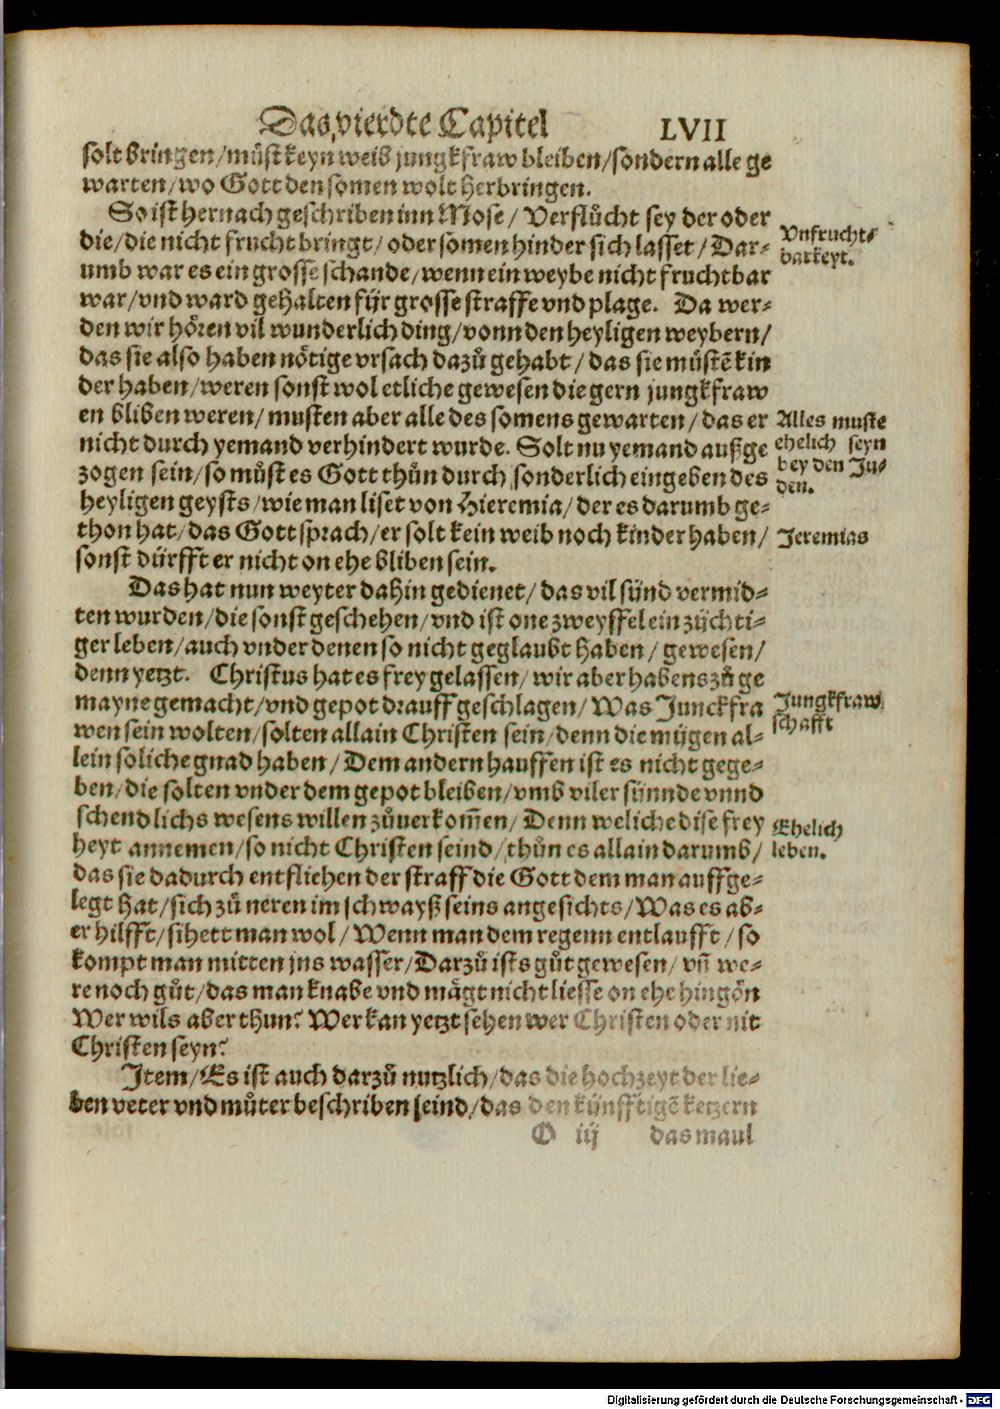 Das vierdte Capitel LVII
solt bringen/ müst keyn weib jungkfraw bleiben/ sondern alle ge
warten/ wo Gott den somen wolt herbringen.
So ist hernach geschriben inn Mose/ Verflücht sey der oder
die/ die nicht frucht bringt/ oder somen hinder sich lasset/ Dar-
umb war es ein grosse schande/ wenn ein weybe nicht fruchtbar
war/ vnd ward gehalten für grosse straffe vnd plage. Da wer-
den wir hören vil wunderlich ding/ vonn den heyligen weybern/
das sie also haben nötige vrsach dazů gehabt/ das sie müstẽ kin
der haben/ weren sonst wol etliche gewesen die gern jungkfraw
en bliben weren/ musten aber alle des somens gewarten/ das er
nicht durch yemand verhindert wurde. Solt nu yemand außge
zogen sein/ so müst es Gott thůn durch sonderlich eingeben des
heyligen geysts/ wie man liset von Hieremia/ der es darumb ge-
thon hat/ das Gott sprach/ er solt kein weib noch kinder haben/
sonst dürfft er nicht on ehe bliben sein.
Das hat nun weyter dahin gedienet/ das vil sünd vermid-
ten wurden/ die sonst geschehen/ vnd ist one zweyffel ein züchti-
ger leben/ auch vnder denen so nicht geglaubt haben/ gewesen/
denn yetzt. Christus hat es frey gelassen/ wir aber habens zů ge
mayne gemacht/ vnd gepot drauff geschlagen/ Was Junckfra
wen sein wolten/ solten allain Christen sein/ denn die mügen al-
lein soliche gnad haben/ Dem andern hauffen ist es nicht gege-
ben/ die solten vnder dem gepot bleiben/ vmb viler sünnde vnnd
schendlichs wesens willen zůuerkom̃en/ Denn weliche dise frey
heyt annemen/ so nicht Christen seind/ thůn es allain darumb/
das sie dadurch entfliehen der straff die Gott dem man auffge-
legt hat/ sich zů neren im schwayß seins angesichts/ Was es ab-
er hilfft/ sihett man wol/ Wenn man dem regenn entlaufft/ so
kompt man mitten jns wasser/ Darzů ists gůt gewesen/ vñ we-
re noch gůt/ das man knabe vnd mägt nicht liesse on ehe hingön
Wer wils aber thun? Wer kan yetzt sehen wer Christen oder nit
Christen seyn?
Item/ Es ist auch darzů nutzlich/ das die hochzeyt der lie-
ben veter vnd můter beschriben seind/ das den künfftigẽ ketzern
O iij das maul
Vnfrucht-
barkeyt.
Alles muste
ehelich seyn
bey den Ju-
den.
Jeremias
Jungkfraw
schafft
Ehelich
leben.
Digitalisierung gefördert durch die Deutsche Forschungsgemeinschaft - DFG